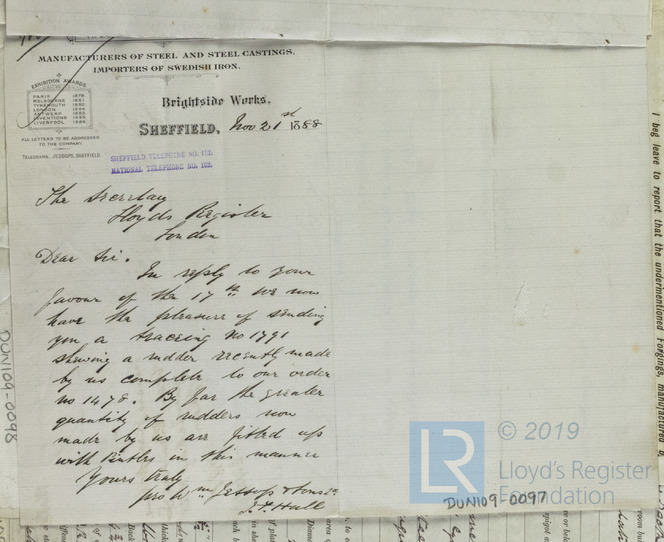 MANUFACTURERS OF STEEL AND STEEL CASTINGS.
IMPORTERS OF SWEDISH IRON.
EXHIBITION AWARDS.
PARIS 1878
MELBOURNE 1881
TYNEMOUTH 1882
LONDON 1884
ANTWERP 1885
INVENTIONS 1885
LIVERPOOL 1886
ALL LETTERS TO BE ADDRESSED
TO THE COMPANY
TELEGRAMS, JESSOPS, SHEFFIELD.
Brightside Works.
SHEFFIELD, Nov 21st 1888
SHEFFIELD TELEPHONE NO. 112.
NATIONAL TELEPHONE NO. 162.
The Secretary
Lloyds Register
London
Dear Sir.
In reply to your
favour of the 17th. We now
have the pleasure of sending
you a tracing No 1791
shewing a rudder recently made
by us complete to our order
no 1478. By far the greater
quantity of rudders now
made by us are fitted up
with Pintles in this manner
Yours truly
pro Wm Jessop & Sons Ld
J. F. Hall
DUN109-0098
DUN109-0097
I beg leave to report that the undermentioned Forgings, manufactured
LR
© 2019
Lloyd's Register
Foundation